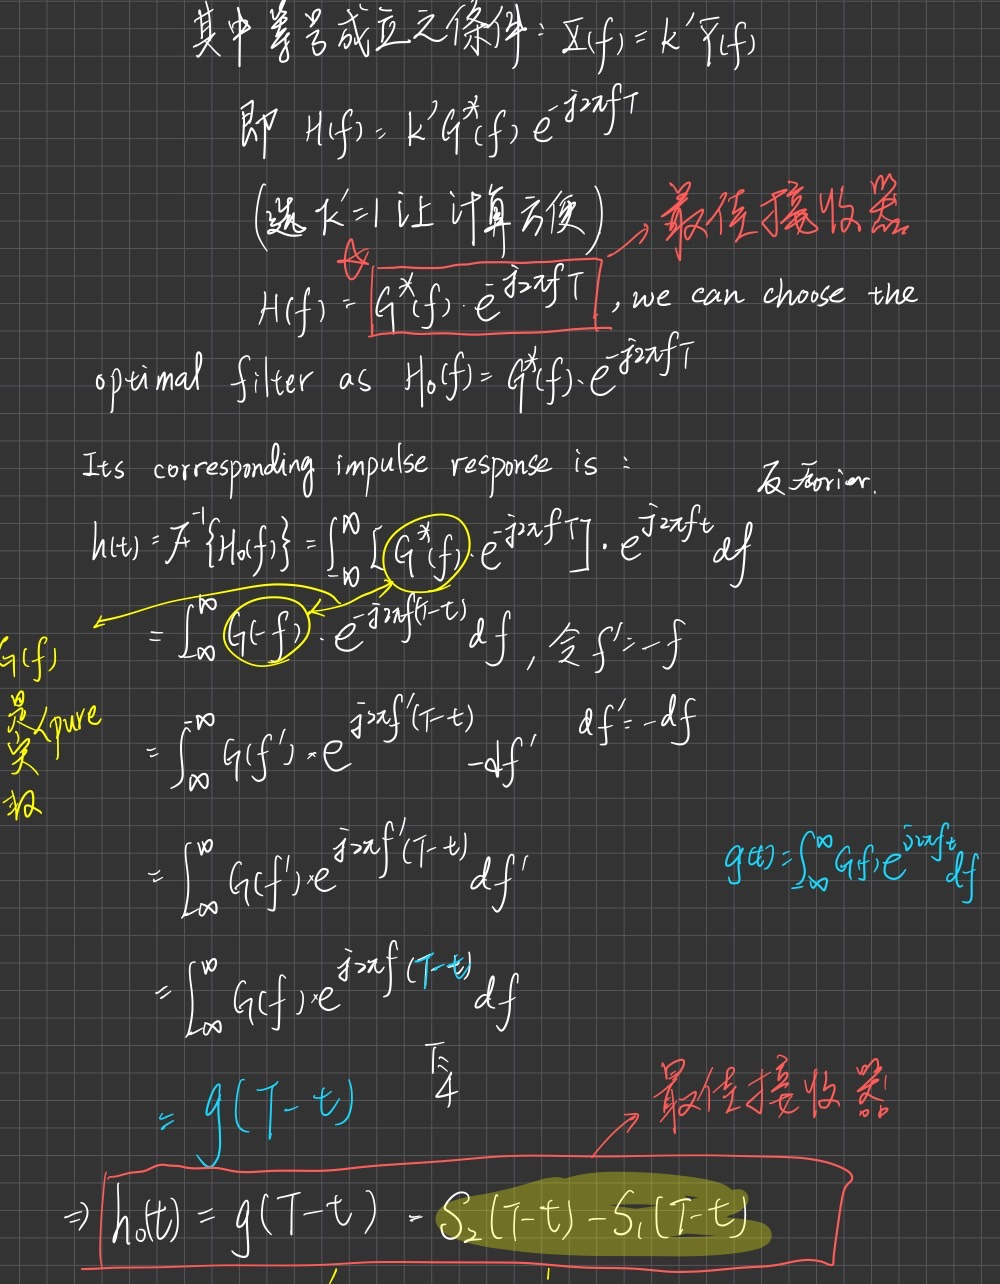 其中等号成立之條件: X(f) = k' Y(f)
即 H(f) = k'G*(f) e^-j2πfT
(選 k'=1 让 計算方便) → 最佳接收器
☆ H(f) = G*(f) · e^-j2πfT , we can choose the
optimal filter as H₀(f) = G*(f) · e^-j2πfT
Its corresponding impulse response is :
反 Forier.
h(t) = F^-1 {H₀(f)} = ∫_-∞^∞ [G*(f) · e^-j2πfT] · e^j2πft df
= ∫_-∞^∞ G(-f) · e^-j2πf(T-t) df , 令 f' = -f
G(f)
是 pure
実
= ∫_∞^-∞ G(f') · e^j2πf'(T-t) -df' df' = -df
= ∫_-∞^∞ G(f') · e^j2πf'(T-t) df'
g(t) = ∫_-∞^∞ G(f) e^j2πft df
= ∫_-∞^∞ G(f) · e^j2πf(T-t) df
= g(T-t)
最佳接收器
⇒ h₀(t) = g(T-t) = S₂(T-t) - S₁(T-t)